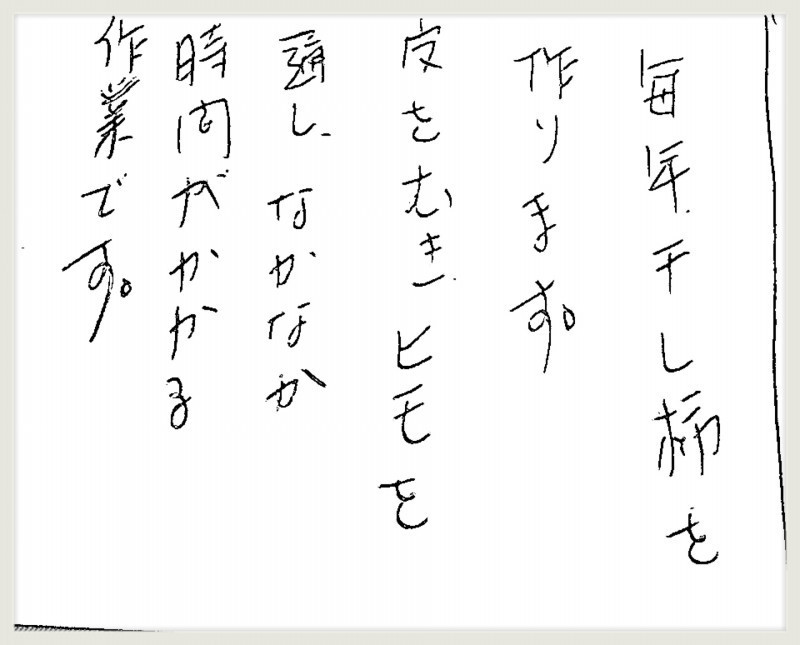 毎年干し柿を
作ります。
皮をむきヒモを
通し、なかなか
時間がかかる
作業です。